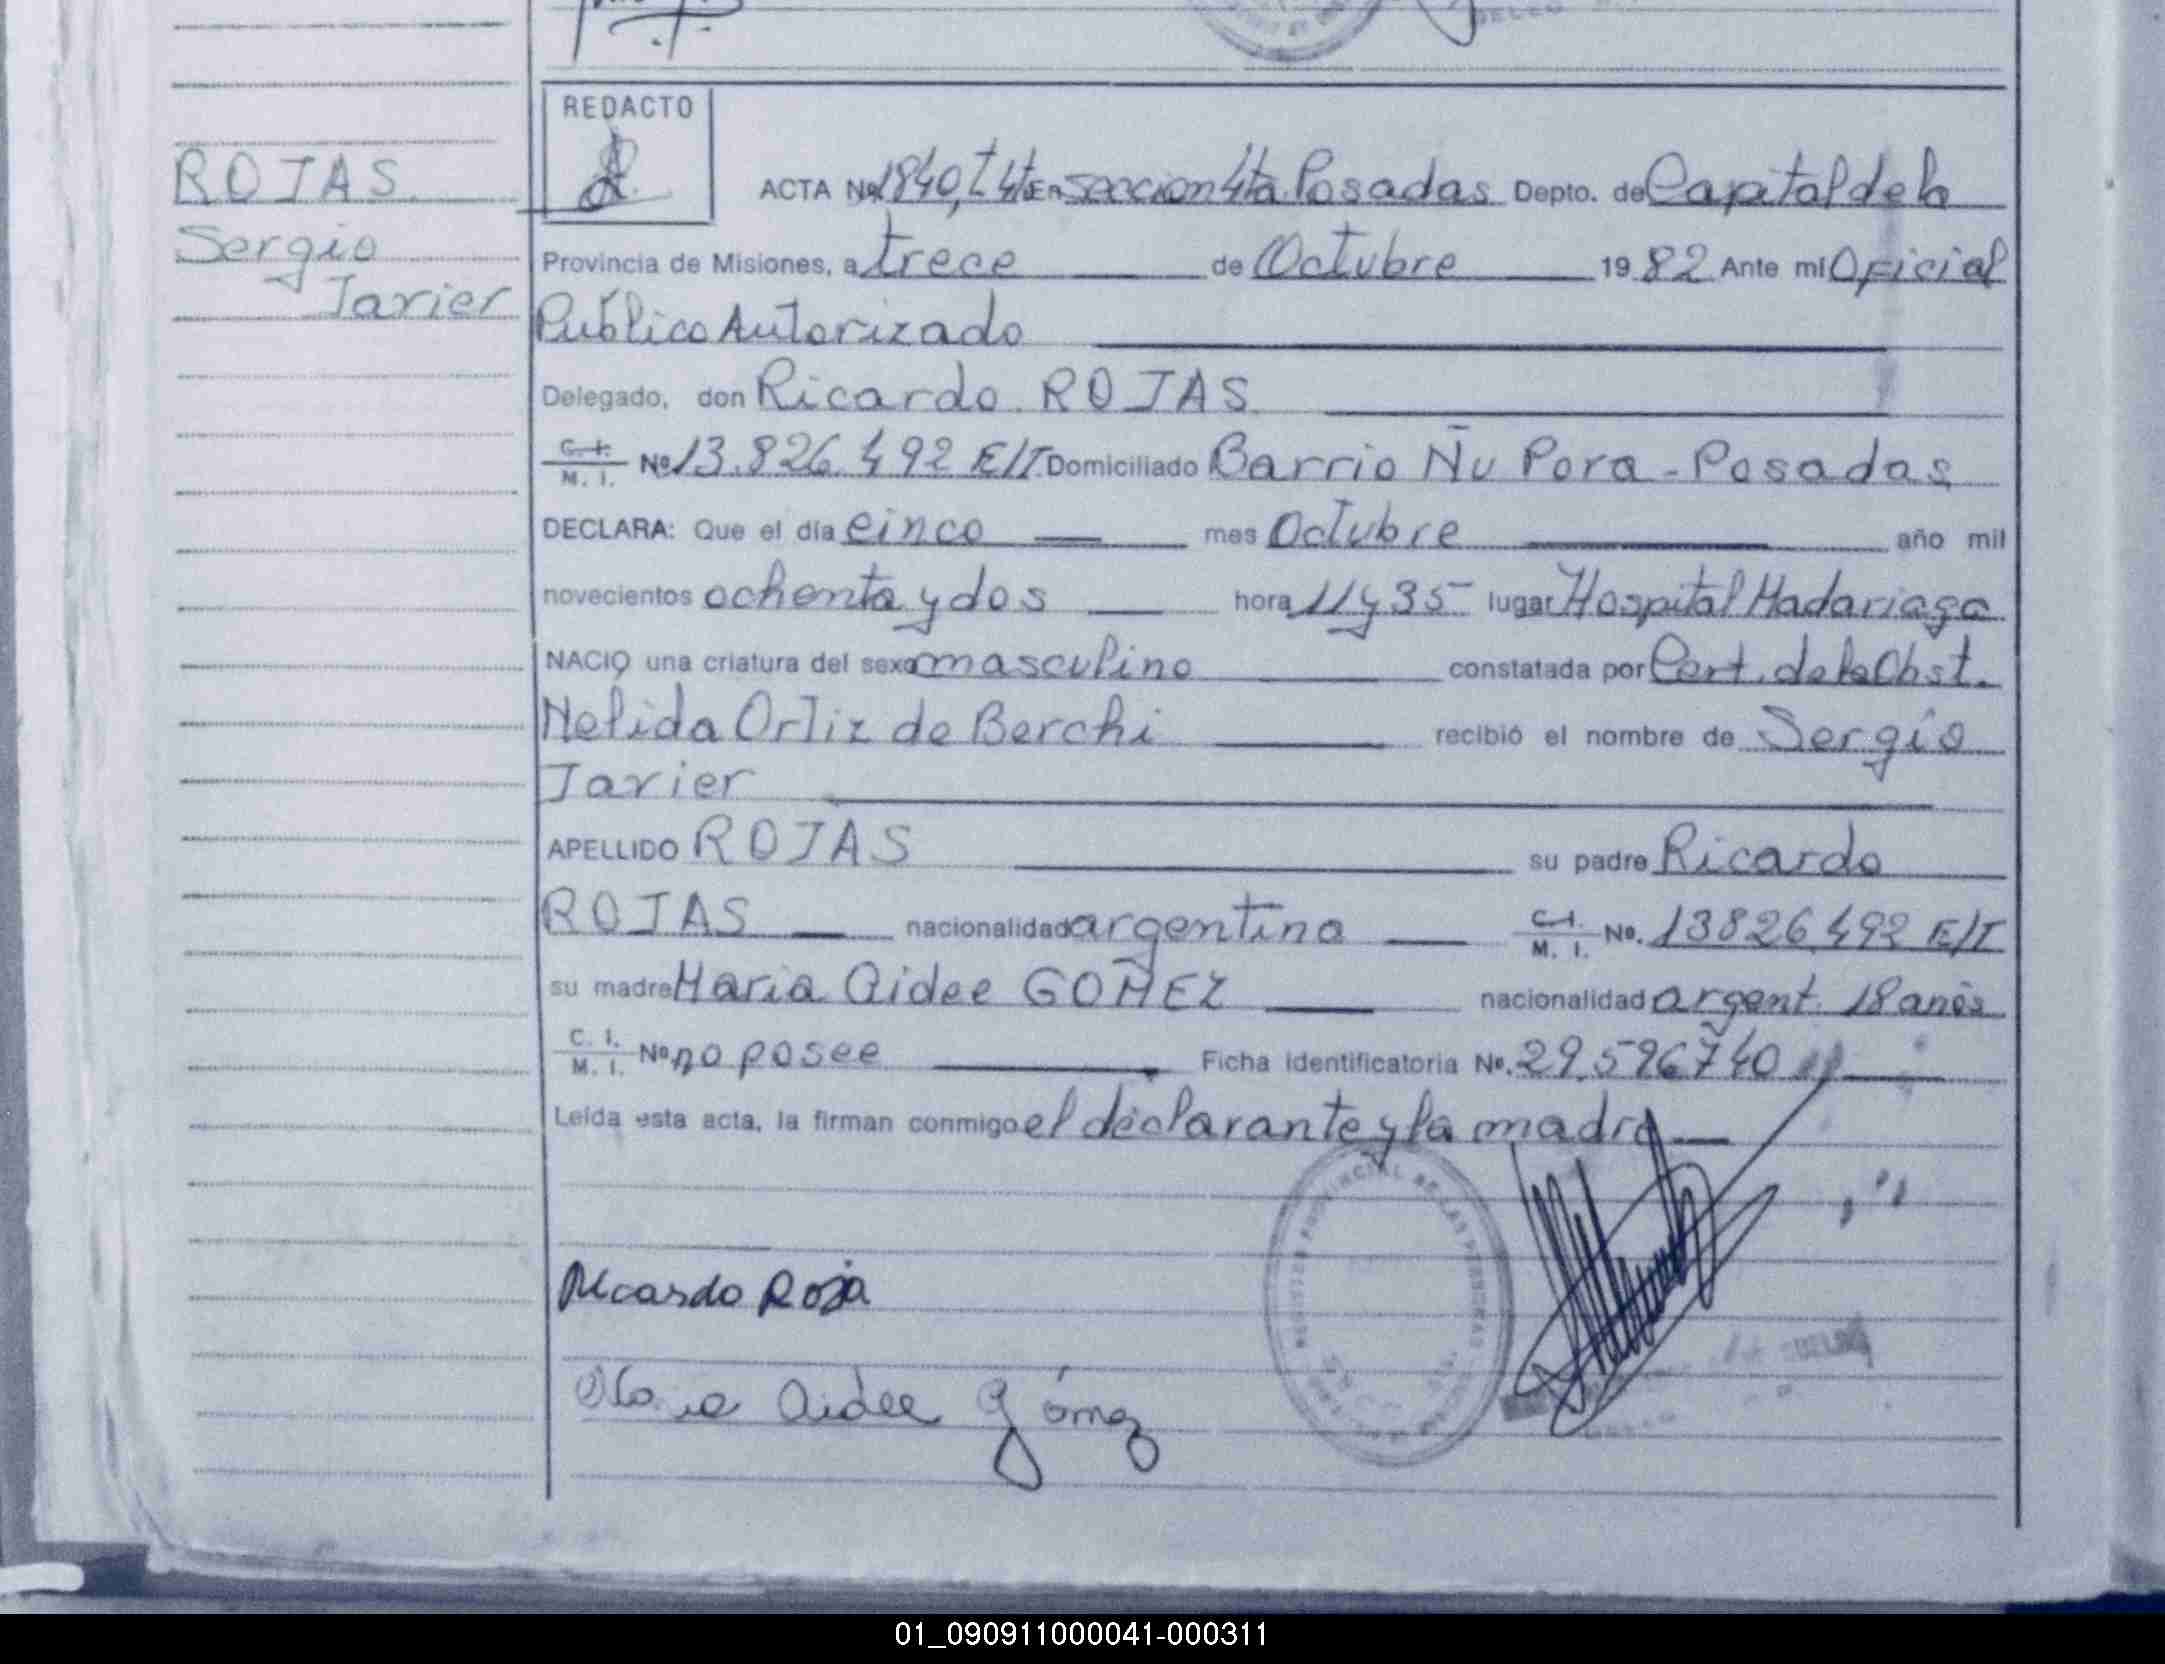 REDACTO
ROJAS
Sergio
Javier
ACTA Nº 1840, T 4t En seccion 4ta Posadas Depto. de Capital de la
Provincia de Misiones, a trece de Octubre 19 82 Ante mi Oficial
Público Autorizado
Delegado, don Ricardo ROJAS
C. I. M. I. Nº 13.826.492 E/T. Domiciliado Barrio Ñu Pora - Posadas
DECLARA: Que el día cinco mes Octubre año mil
novecientos ochenta y dos hora 11 y 35 lugar Hospital Madariaga
NACIO una criatura del sexo masculino constatada por Cert. de la Obst.
Nelida Ortiz de Berchi recibió el nombre de Sergio
Javier
APELLIDO ROJAS su padre Ricardo
ROJAS nacionalidad argentina C.I. M. I. Nº. 13826.492 E/T
su madre Maria Aidee GOMEZ nacionalidad argent. 18 años
C. I. M. I. Nº no posee Ficha identificatoria Nº. 29.596740
Leída esta acta, la firman conmigo el declarante y la madre
Ricardo Roja
Maria Aidee Gómez
01_090911000041-000311